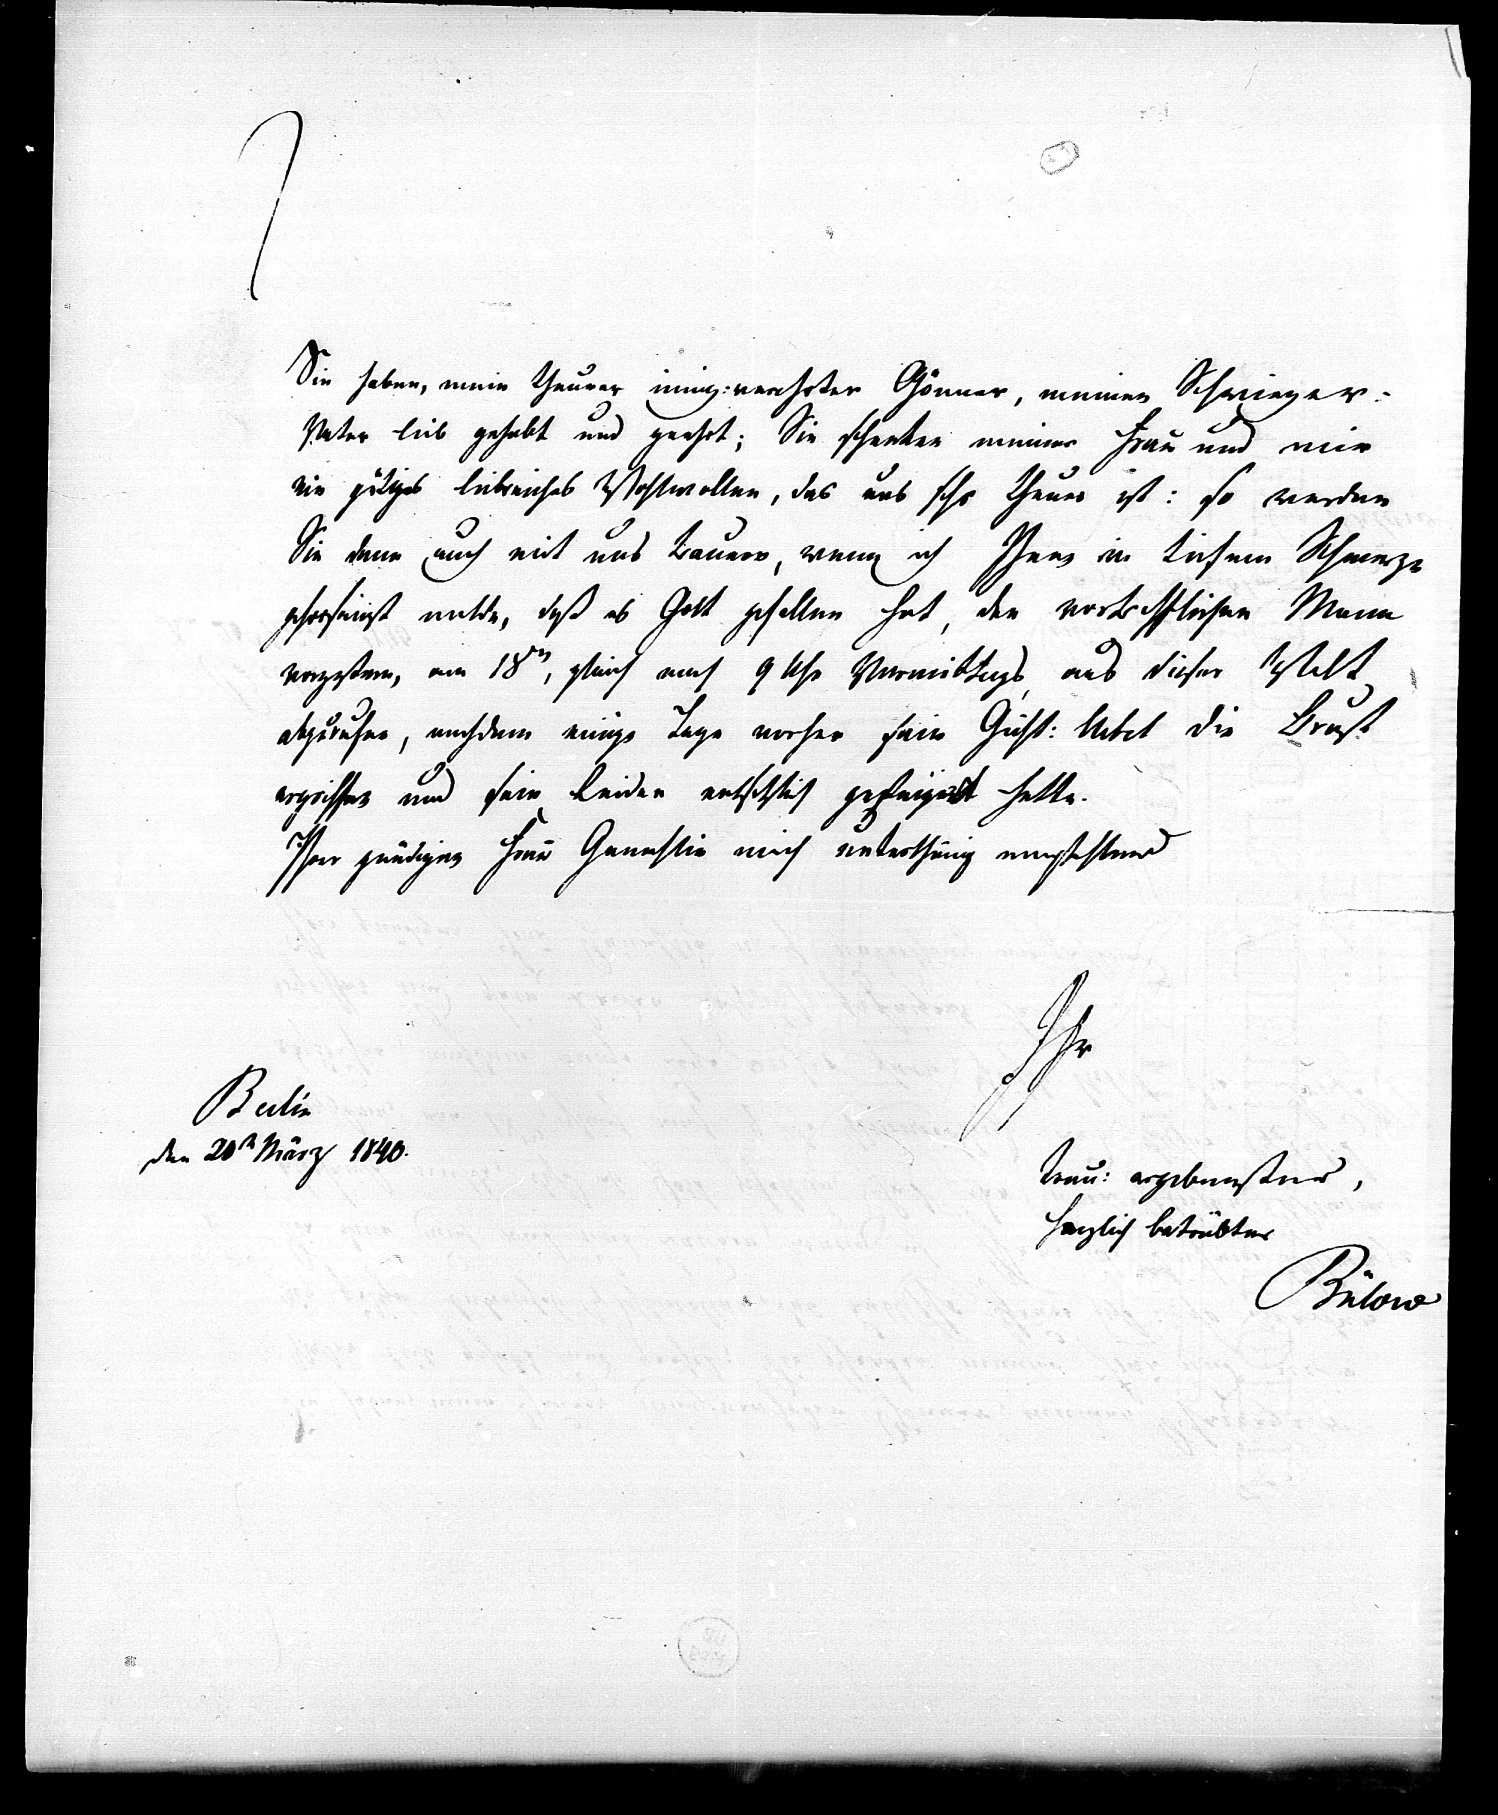 Sie haben, mein theurer innig-verehrter Gönner, meinen Schwieger-
Vater lieb gehabt und geehrt; Sie schenken meiner Frau und mir
ein gütiges liebreiches Wohlwollen, das uns sehr theuer ist: so werden
Sie denn auch mit uns trauern, wenn ich Ihnen in tiefem Schmerze
gehorsamst melde, daß es Gott gefallen hat, den vortrefflichen Mann
vorgestern, am 18ten, gleich nach 9 Uhr Vormittags, aus dieser Welt
abzurufen, nachdem einige Tage vorher sein Gicht: Uebel die Brust
ergriffen und sein Leiden entsetzlich gesteigert hatte.
Ihrer gnädigen Frau Gemahlin mich unterthänig empfehlend
Ihr
Berlin
den 20n März 1840.
treu: ergebenster,
herzlich betrübter
Bülow